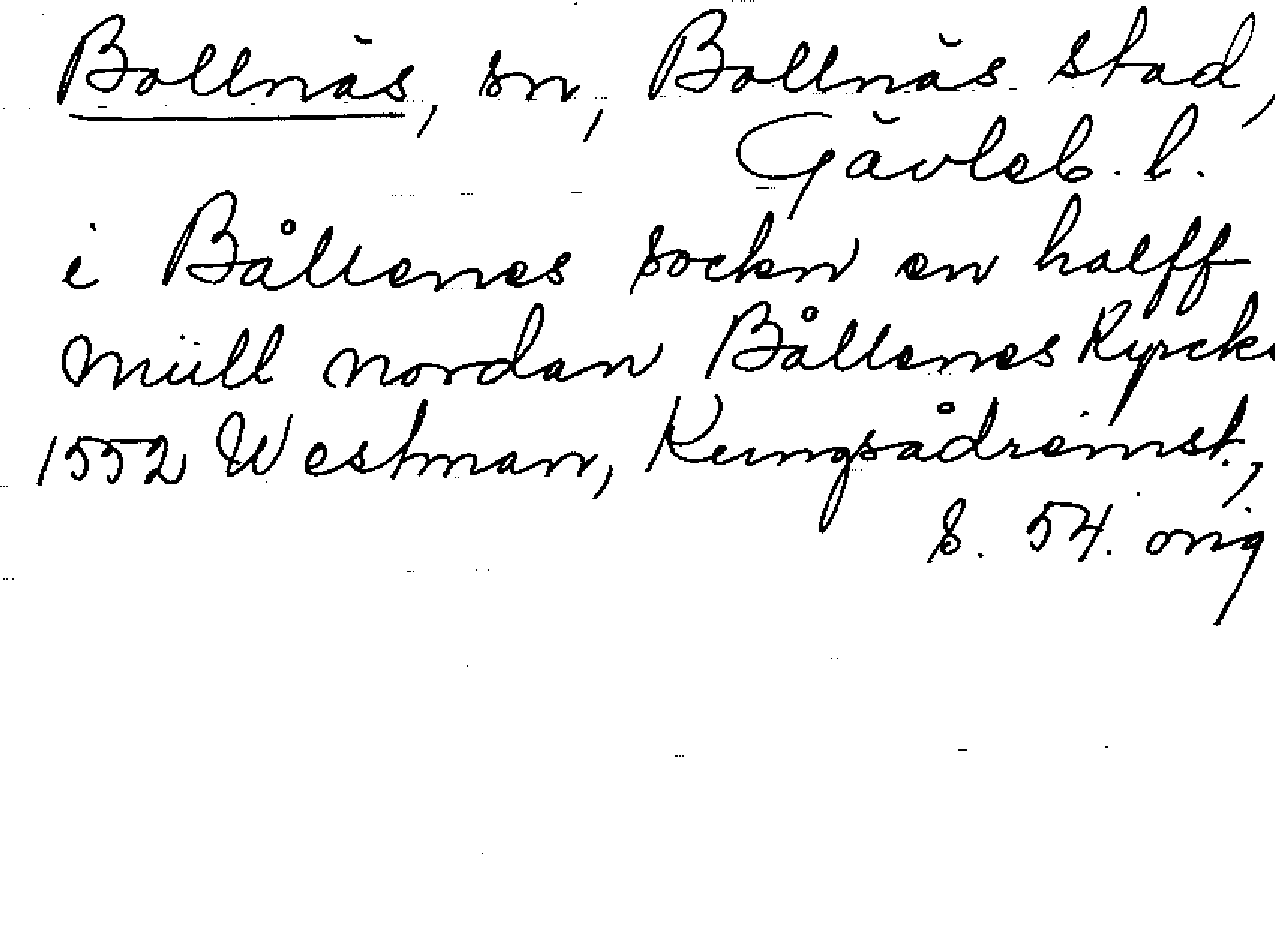 Bollnäs, sn, Bollnäs stad,
Gävleb. l.
i Bållenes sockn en halff
müll nordan Bållenes Kyrcke
1552 Westman, Kungsådrainst.,
s. 54. orig